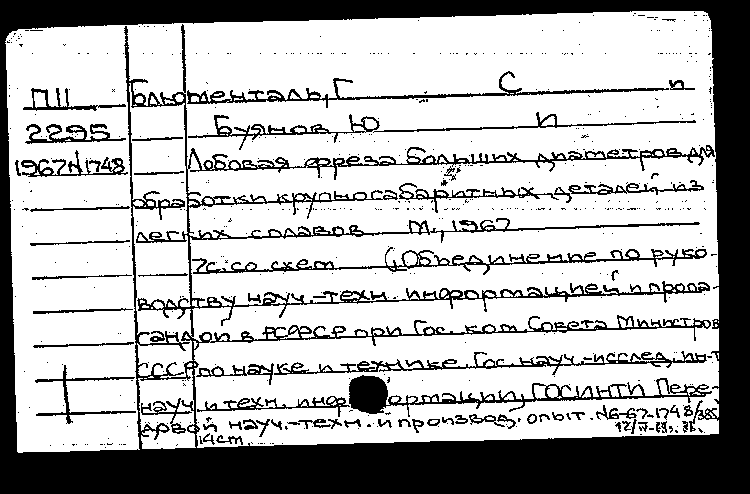 П11 Блюменталь, Г С п
2295 Буянов, Ю И
1967 N1748 Лобовая фреза больших диаметров для
обработки крупногабаритных деталей из
легких сплавов М., 1967
7с. со схем (Объединение по руко-
водству науч.-техн. информацией и пропа-
гандой в РСФСР при Гос. ком. Совета Министров
СССР по науке и технике. Гос. науч.-исслед. ин-т
науч и техн. информации, ГОСИНТИ Пере-
довой науч.-техн. и производ. опыт. №6-67-1748/385
14cm.